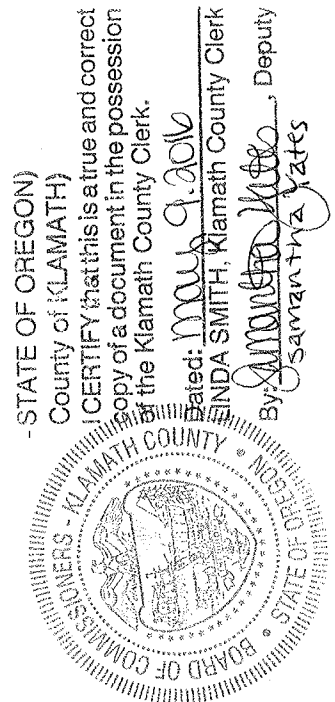 STATE OF OREGON)
County of KLAMATH)
I CERTIFY that this is a true and correct
copy of a document in the possession
of the Klamath County Clerk.
Dated: May 9. 2016
LINDA SMITH, Klamath County Clerk
By: Samantha Yates, Deputy
samantha yates
BOARD OF COMMISSIONERS - KLAMATH COUNTY
STATE OF OREGON